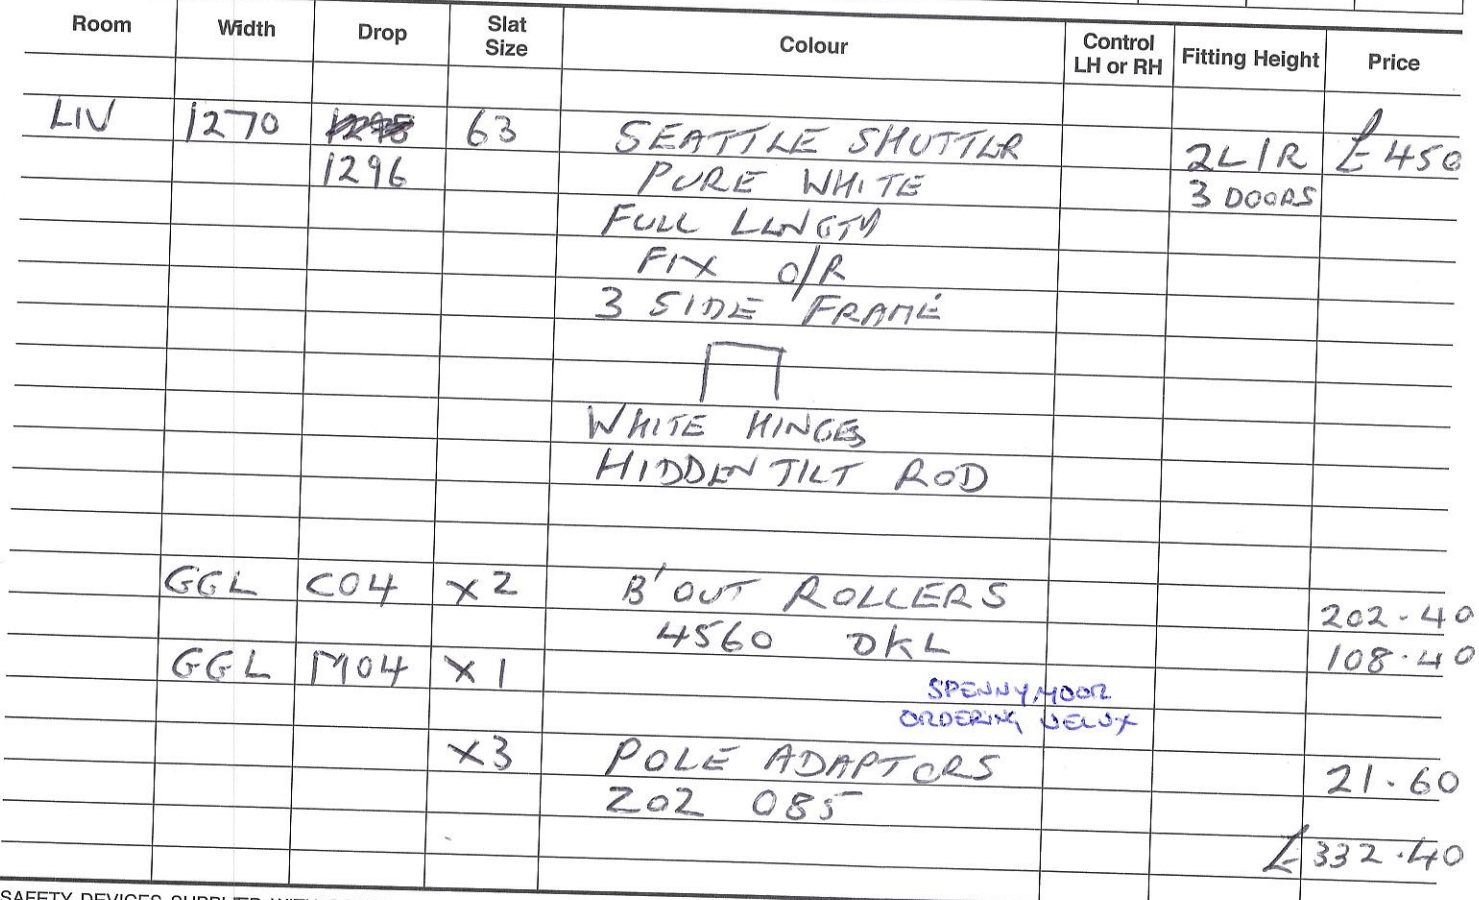 Room Width Drop Slat Size Colour Control LH or RH Fitting Height Price
LIV 1270 63 SEATTLE SHUTTER 2L1R £450
1296 PURE WHITE 3 DOORS
FULL LENGTH
FIX O/R
3 SIDE FRAME
WHITE HINGES
HIDDEN TILT ROD
GGL C04 x2 B'OUT ROLLERS 202.40
4560 DKL 108.40
GGL M04 x1
SPENNYMOOR
ORDERING VELUX
x3 POLE ADAPTORS 21.60
Z02 085
£332.40
SAFETY DEVICES SUPPLIED WITH